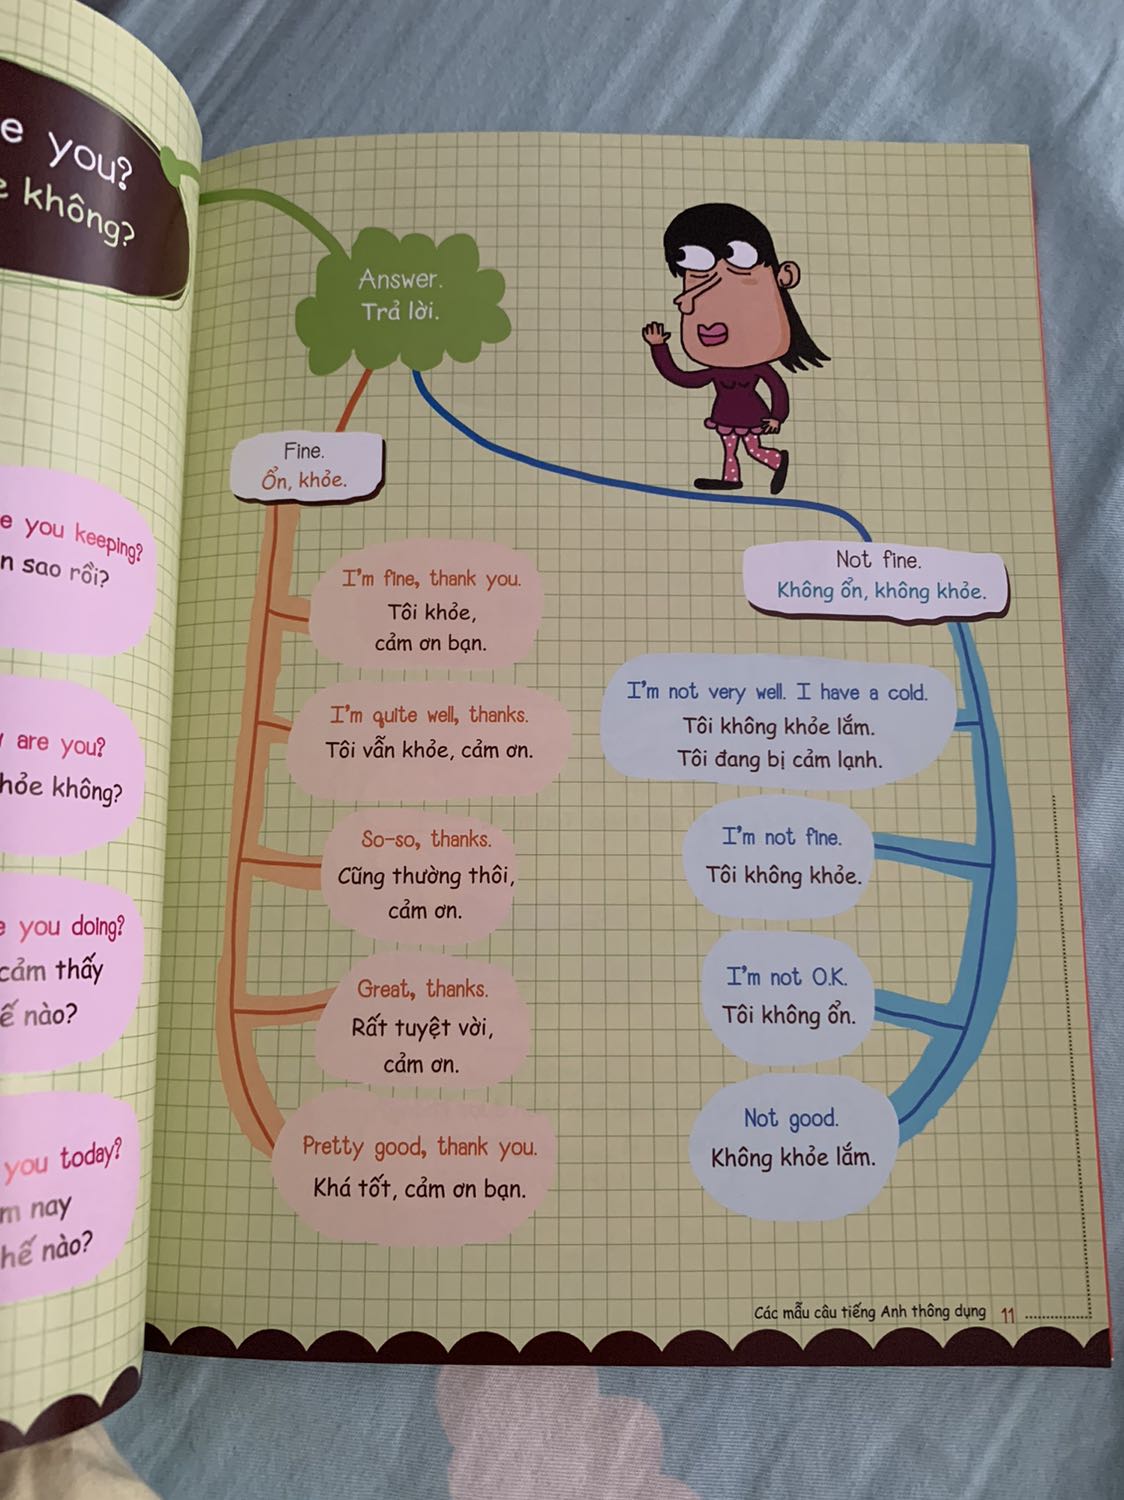 you?
không?
you keeping?
sao rồi?
are you?
không?
you doing?
cảm thấy
nào?
you today?
nay
nào?
Answer.
Trả lời.
Fine.
Ổn, khỏe.
I'm fine, thank you.
Tôi khỏe,
cảm ơn bạn.
I'm quite well, thanks.
Tôi vẫn khỏe, cảm ơn.
So-so, thanks.
Cũng thường thôi,
cảm ơn.
Great, thanks.
Rất tuyệt vời,
cảm ơn.
Pretty good, thank you.
Khá tốt, cảm ơn bạn.
Not fine.
Không ổn, không khỏe.
I'm not very well. I have a cold.
Tôi không khỏe lắm.
Tôi đang bị cảm lạnh.
I'm not fine.
Tôi không khỏe.
I'm not O.K.
Tôi không ổn.
Not good.
Không khỏe lắm.
Các mẫu câu tiếng Anh thông dụng 11